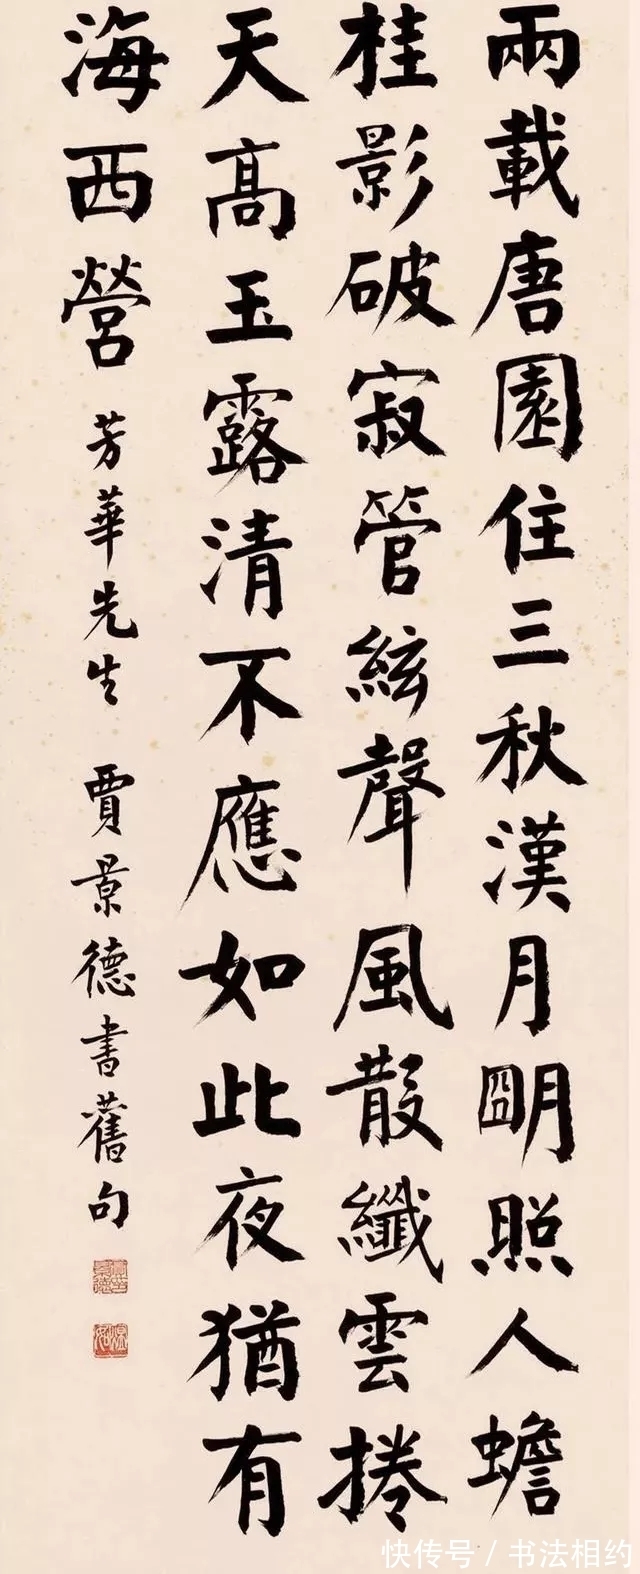 兩載唐園住三秋漢月朙照人蟾
桂影破寂管絃聲風散纖雲捲
天高玉露清不應如此夜猶有
海西營
芳華先生 賈景德書舊句
快传号/书法相约